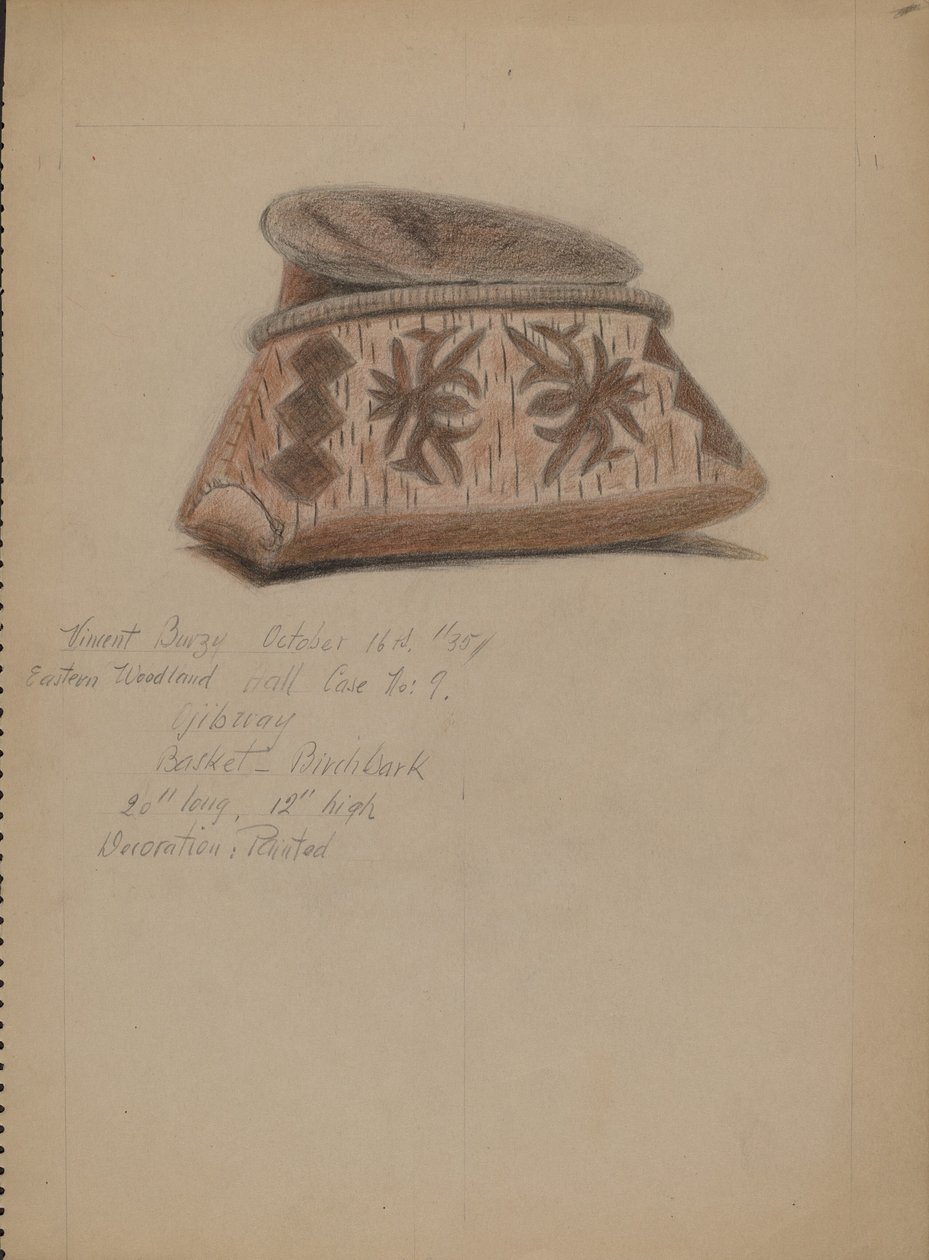 Vincent Burzy October 16th. "35"
Eastern Woodland Hall Case No: 9.
Ojibway
Basket - Birchbark
20" long, 12" high
Decoration: Painted